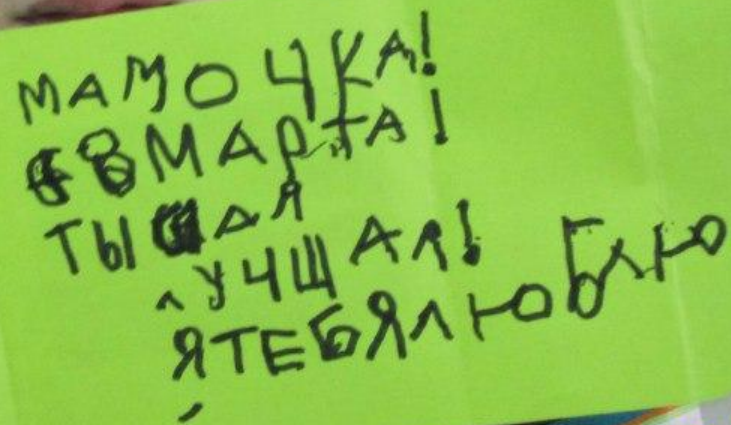 МАМОЧКА!
С 8 МАРТА!
ТЫ АЯ
ЛУЧШАЯ!
Я ТЕБЯ ЛЮБЛЮ